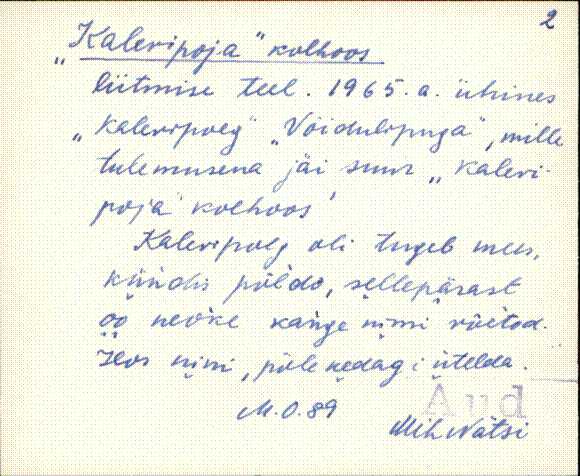 2
„Kalevipoja" kolhoos
liitmise teel. 1965. a. ühines
„Kalevipoeg" „Võidulipuga", mille
tulemusena jäi suur „Kalevi-
poja" kolhoos
Kalevipoeg oli tugeb mees,
kündis põldo, sellepärast
oo neoke kange nimi võetod.
Hos nimi, põle kedagi ütelda.
Aud
M. O. 89
Mih Nätsi